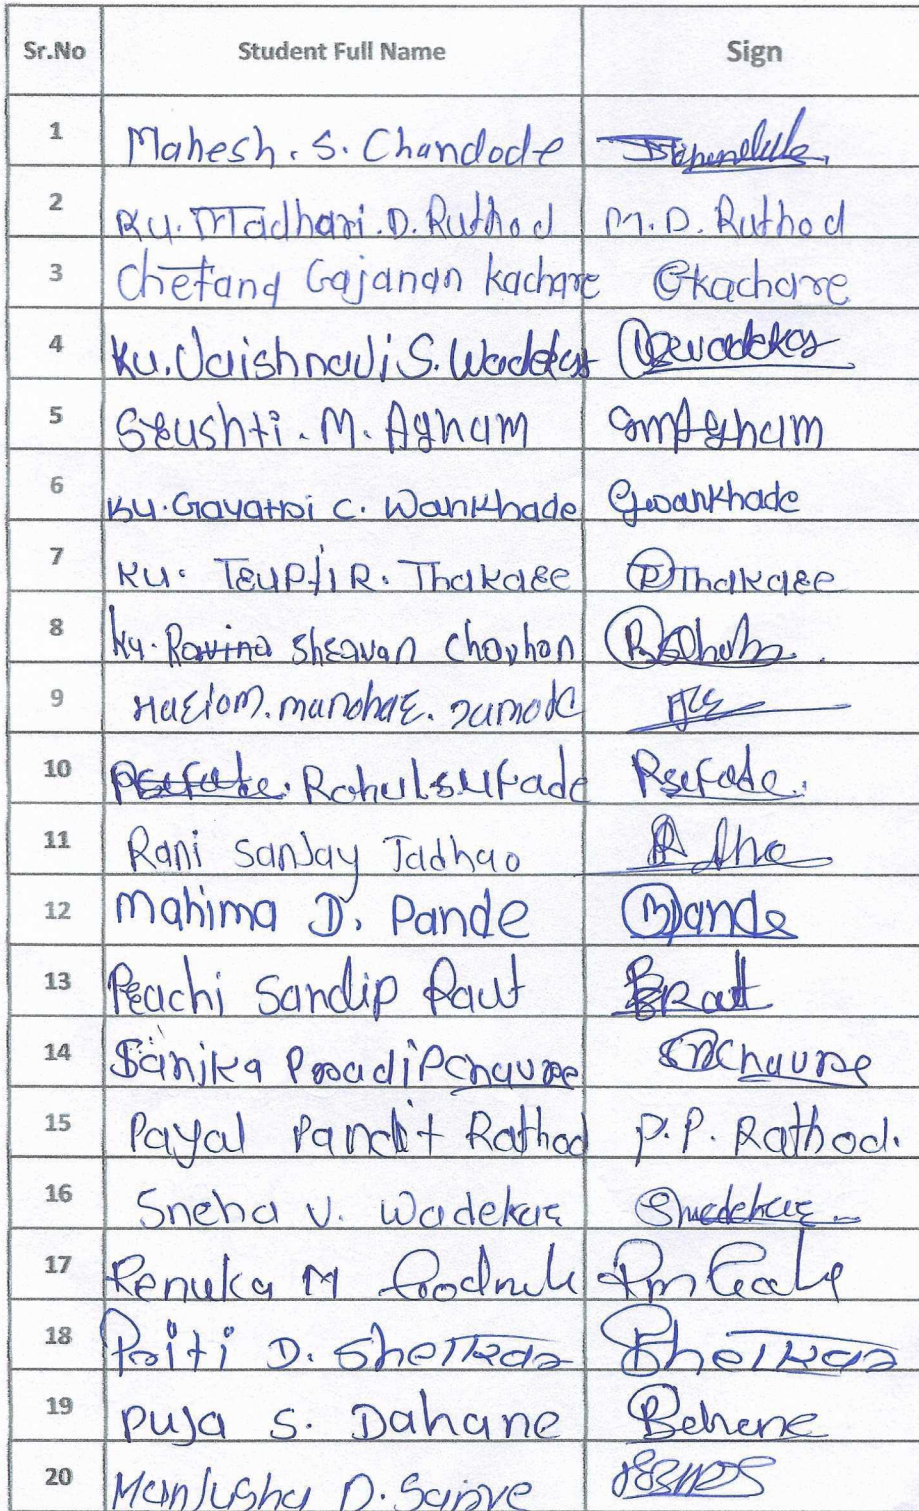 Sr.No Student Full Name Sign
1 Mahesh. S. Chandode
2 Ku. Madhari. D. Ruthod M. D. Ruthod
3 Chetana Gajanan kachare Gkachare
4 Ku. Vaishnavi S. Wadekar
5 Srushti. M. Agham SmAgham
6 Ku. Gayatri C. Wankhade Gwankhade
7 Ku. Trupti R. Thakare Thakare
8 Ku. Ravina Shravan Chavhan
9 manohar.
10 Psufade. Rahul sufade Psufade.
11 Rani Sanjay Jadhao
12 Mahima D. Pande Mpande
13 Prachi Sandip Raut PSRaut
14 Sanika Pradip Chaure SPChaure
15 Payal Pandit Rathod P. P. Rathod.
16 Sneha V. Wadekar
17 Renuka M
18 Priti D. Shelkar Shelkar
19 Puja S. Dahane
20 Manjusha D.